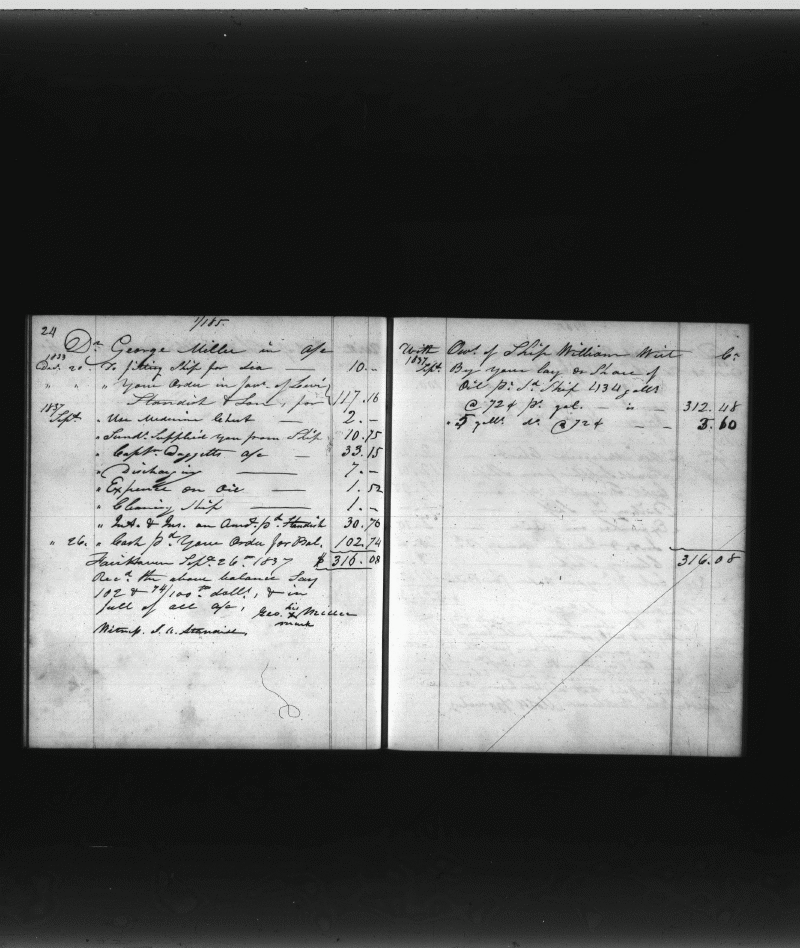 1/185.
24
Dr. George Miller in a/c
1833
Dec. 20 To fitting Ship for Sea — 10.-
" " " Your Order in fav. of Lewis
Standish & Son, for 117.16
1837
Sept. " Use Medicine Chest — 2.-
" Sund. Supplied you from Ship 10.75
" Capt. Daggetts a/c — 33.15
" Discharging — 7.-
" Expense on Oil — 1.52
" Cleaning Ship — 1.-
" Int. & Ins. on Amt. pd. Standish 30.76
" 26. " Cash pd. Your Order for Bal. 102.74
Fairhaven Sept. 26th 1837 $ 316.08
Recd. the above balance Say
102 & 74/100ths dolls, & in
full of all a/c,
Geo. his X mark Miller
Witness. S. A. Standish
With Ows. of Ship William Wirt Cr.
1837
Sept. By your lay or Share of
Oil pr. Sd. Ship 434 galls
@ 72¢ pr. gal. — is — 312.48
" 5 galls. do. @ 72¢ — — 3.60
316.08